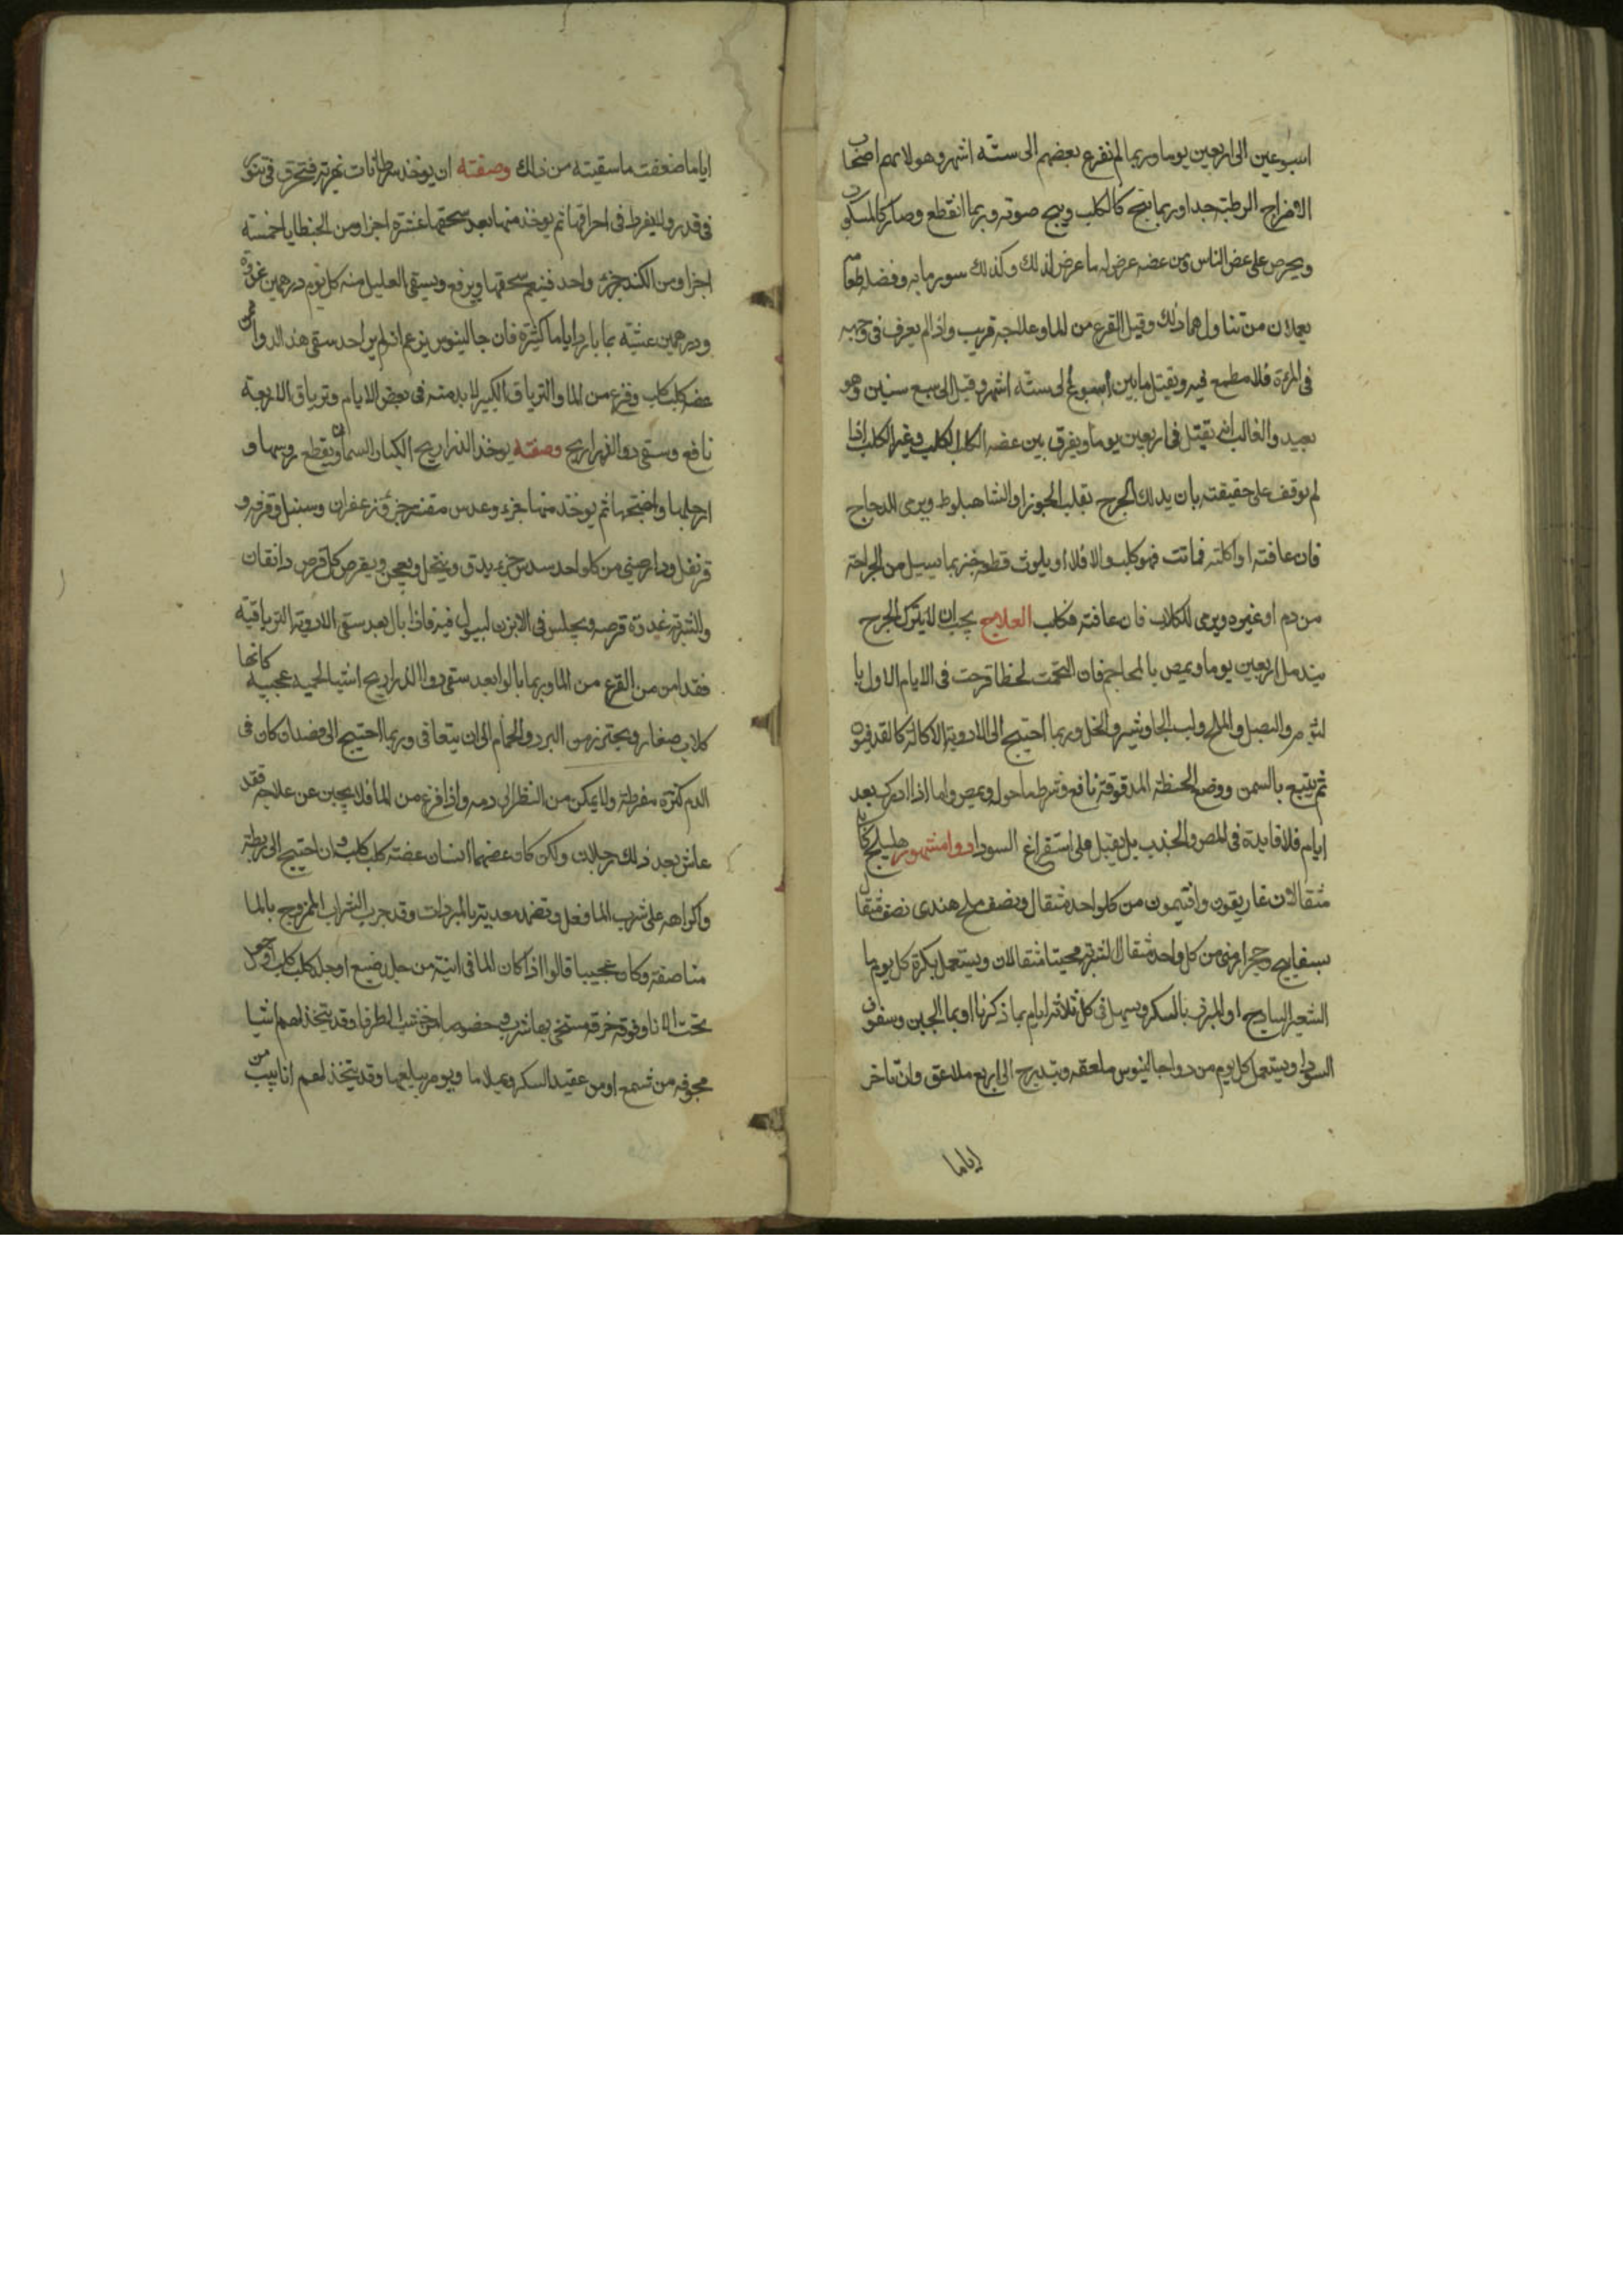 اسبوعين الى اربعين يوما وربما لم تفزع بعضهم الى ستة اشهر وهولا هم اصحاب
الامزاج الرطبة جدا وربما نبح كالكلب وبح صوته وربما انقطع وصار كالمسكوت
ويحرص على عض الناس ومن عضه عرض له ما عرض لذلك وكذلك سور مايه وفضله طعامه
يعملان من تناولهما ذلك وقيل الفزع من الما وعلاجه قريب واذا لم يعرف في وجهه
في المرءة فلا مطمع فيه ويقتل ما بين اسبوع الى ستة اشهر وقيل الى سبع سنين وهو
بعيد والغالب انه يقتل في اربعين يوما ويفرق بين عضه الكلب الكلب وغير الكلب اذا
لم يوقف على حقيقته بان يدلك الجرح بقلب الجوز او الشاهبلوط ويرمى للدجاج
فان عافته او اكلته فماتت فهو كلب والا فلا او يلوث قطعة خبز بما يسيل من الجراحة
من دم او غيره ويرمى للكلاب فان عافته فكلب العلاج يجب ان لا يترك الجرح
يندمل اربعين يوما ويمص بالمحاجم فان التحمت لخطا قرحت في الايام الاول با
لثوم والبصل والملح ولبن الجاوشير والخل وربما احتيج الى الادوية الاكالة كالقلدفيون
ثم يتبع بالسمن ووضع الحنطة المدقوقة نافع وتشرط ما حوله ويمص واما اذا ادرك بعد
ايام فلا فايدة في المص والجذب بل يقبل على استفراغ السودا دوا مشهور هليلج كابلي
مثقالان غاريقون وافتيمون من كل واحد مثقال ونصف ملح هندى نصف مثقال
بسفايج وحجر ارمني من كل واحد مثقال الشربة محبتا مثقالان ويستعمل بكرة كل يوم ما
الشعير الساذج او المبزر بالسكر ويسهل في كل ثلاثة ايام بما ذكرنا او بما الجبن وسفوف
السودا ويستعمل كل يوم من دوا جالينوس ملعقه ويتدرج الى اربع ملاعق وان تاخر
اياما
اياما ضعفت ما سقيته من ذلك وصفته ان يوخذ سرطانات نهرية فتحرق في تنور
في قدر ولا يفرط في احراقها ثم يوخذ منها بعد سحقها عشرة اجزا ومن الجنطايا خمسة
اجزا ومن الكندر جزء واحد فينعم سحقها ويرفع ويسقى العليل منه كل يوم درهمين غدوة
ودرهمين عشية بما بارد اياما كثيرة فان جالينوس يزعم انه لم ير احد سقى هذا الدوا ممن
عضه كلب كلب وفزع من الما والترياق الكبير لا بد منه في بعض الايام وترياق الاربعة
نافع وسقى دوا الذراريح وصفته يوخذ الذراريح الكبار السمان ويقطع روسها و
ارجلها واجنحتها ثم يوخذ منها جزء وعدس مقشر جزء وزعفران وسنبل وقرفه و
قرنفل ودارصيني من كل واحد سدس جزء يدق وينخل ويعجن ويقرص كل قرص دانقان
والشربة غدوة قرصه ويجلس في الابزن ليبول فيه فاذا بال بعد سقى الادوية الترياقية
فقد امن من الفزع من الما وربما بالوا بعد سقى دوا الذراريح اشيا لحمية عجيبة كانها
كلاب صغار ويحترز من البرد والحمام الى ان يتعافى وربما احتيج الى فصد ان كان في
الدم كثرة مفرطة ولا يمكن من النظر الى دمه واذا فزع من الما فلا يجبن عن علاجه فقد
عاش بعد ذلك رجلان ولكن كان عضهما انسان عضته كلب كلب وان احتيج الى ربطه
واكراهه على شرب الما فعل وتضمد معديته بالمبردات وقد جرب الشراب الممزوج بالما
مناصفة وكان عجيبا قالوا اذا كان الما في انية من جلد ضبع او جلد كلب كلب او جعل
تحت الانا وفوقه خرقه مستخي بها شربه خصوصا من خشب الطرفا وقد يتخذ لهم اشيا
مجوفه من شمع او من عقيد السكر ويملا ما ويومر ببلعها وقد يتخذ لهم انابيب من